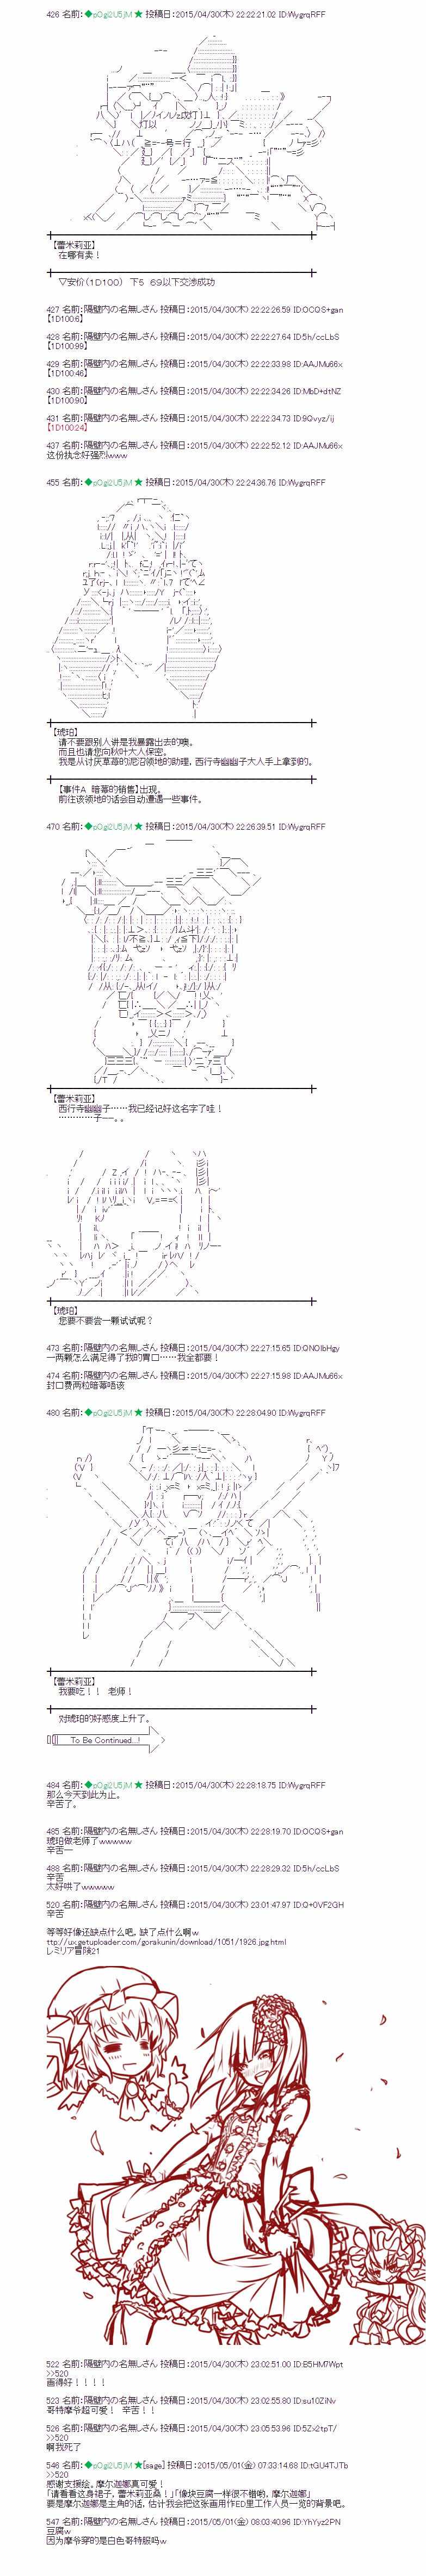 426 名前:◆pOgi2U5jM ★ 投稿日:2015/04/30(木) 22:22:21.02 ID:WygrqRFF
【蕾米莉亚】
在哪有卖！
▽安价(1D100) 下5 69以下交涉成功
427 名前:隔壁内の名無しさん 投稿日:2015/04/30(木) 22:22:26.59 ID:OCQS+gan
【1D100:6】
428 名前:隔壁内の名無しさん 投稿日:2015/04/30(木) 22:22:27.64 ID:5h/ccLbS
【1D100:99】
429 名前:隔壁内の名無しさん 投稿日:2015/04/30(木) 22:22:33.98 ID:AAJMu66x
【1D100:46】
430 名前:隔壁内の名無しさん 投稿日:2015/04/30(木) 22:22:34.26 ID:MbD+dtNZ
【1D100:90】
431 名前:隔壁内の名無しさん 投稿日:2015/04/30(木) 22:22:34.73 ID:9Qvyz/ij
【1D100:24】
437 名前:隔壁内の名無しさん 投稿日:2015/04/30(木) 22:22:52.12 ID:AAJMu66x
这份执念好强烈www
455 名前:◆pOgi2U5jM ★ 投稿日:2015/04/30(木) 22:24:36.76 ID:WygrqRFF
【琥珀】
请不要跟别人讲是我暴露出去的噢。
而且也请您向秋叶大人保密。
我是从讨厌草莓的泥沼领地的助理，西行寺幽幽子大人手上拿到的。
【事件A 暗幕的销售】出现。
前往该领地的话会自动遭遇一些事件。
470 名前:◆pOgi2U5jM ★ 投稿日:2015/04/30(木) 22:26:39.51 ID:WygrqRFF
【蕾米莉亚】
西行寺幽幽子……我已经记好这名字了哇！
…………子--。。
【琥珀】
您要不要尝一颗试试呢？
473 名前:隔壁内の名無しさん 投稿日:2015/04/30(木) 22:27:15.65 ID:QNOIbHgy
一两颗怎么满足得了我的胃口……我全都要！
474 名前:隔壁内の名無しさん 投稿日:2015/04/30(木) 22:27:15.98 ID:AAJMu66x
封口费两粒暗幕唔该
480 名前:◆pOgi2U5jM ★ 投稿日:2015/04/30(木) 22:28:04.90 ID:WygrqRFF
【蕾米莉亚】
我要吃！！ 老师！
对琥珀的好感度上升了。
To Be Continued...!
484 名前:◆pOgi2U5jM ★ 投稿日:2015/04/30(木) 22:28:18.75 ID:WygrqRFF
那么今天到此为止。
辛苦了。
485 名前:隔壁内の名無しさん 投稿日:2015/04/30(木) 22:28:19.70 ID:OCQS+gan
琥珀做老师了wwwww
辛苦一
488 名前:隔壁内の名無しさん 投稿日:2015/04/30(木) 22:28:29.32 ID:5h/ccLbS
辛苦
太好哄了wwwww
520 名前:隔壁内の名無しさん 投稿日:2015/04/30(木) 23:01:47.97 ID:Q+0VF2GH
辛苦
等等好像还缺点什么吧，缺了点什么啊w
ttp://ux.getuploader.com/gorakunin/download/1051/1926.jpg.html
レミリア冒険21
522 名前:隔壁内の名無しさん 投稿日:2015/04/30(木) 23:02:51.00 ID:B5HM7Wpt
>>520
画得好！！！！
523 名前:隔壁内の名無しさん 投稿日:2015/04/30(木) 23:02:55.80 ID:su10ZiNv
哥特摩伞超可爱！ 辛苦！！
526 名前:隔壁内の名無しさん 投稿日:2015/04/30(木) 23:05:53.96 ID:5Zx2tpT/
>>520
啊我死了
546 名前:◆pOgi2U5jM ★[sage] 投稿日:2015/05/01(金) 07:33:14.68 ID:tGU4TJTb
>>520
感谢支援绘。摩尔迦娜真可爱！
「请看看这身裙子，蕾米莉亚桑！」「像块豆腐一样很不错哟，摩尔迦娜」
要是摩尔迦娜是主角的话，估计我会把这张画用作ED里工作人员一览的背景吧。
547 名前:隔壁内の名無しさん 投稿日:2015/05/01(金) 08:03:40.96 ID:YhYyz2PN
豆腐w
因为摩伞穿的是白色哥特服吗w